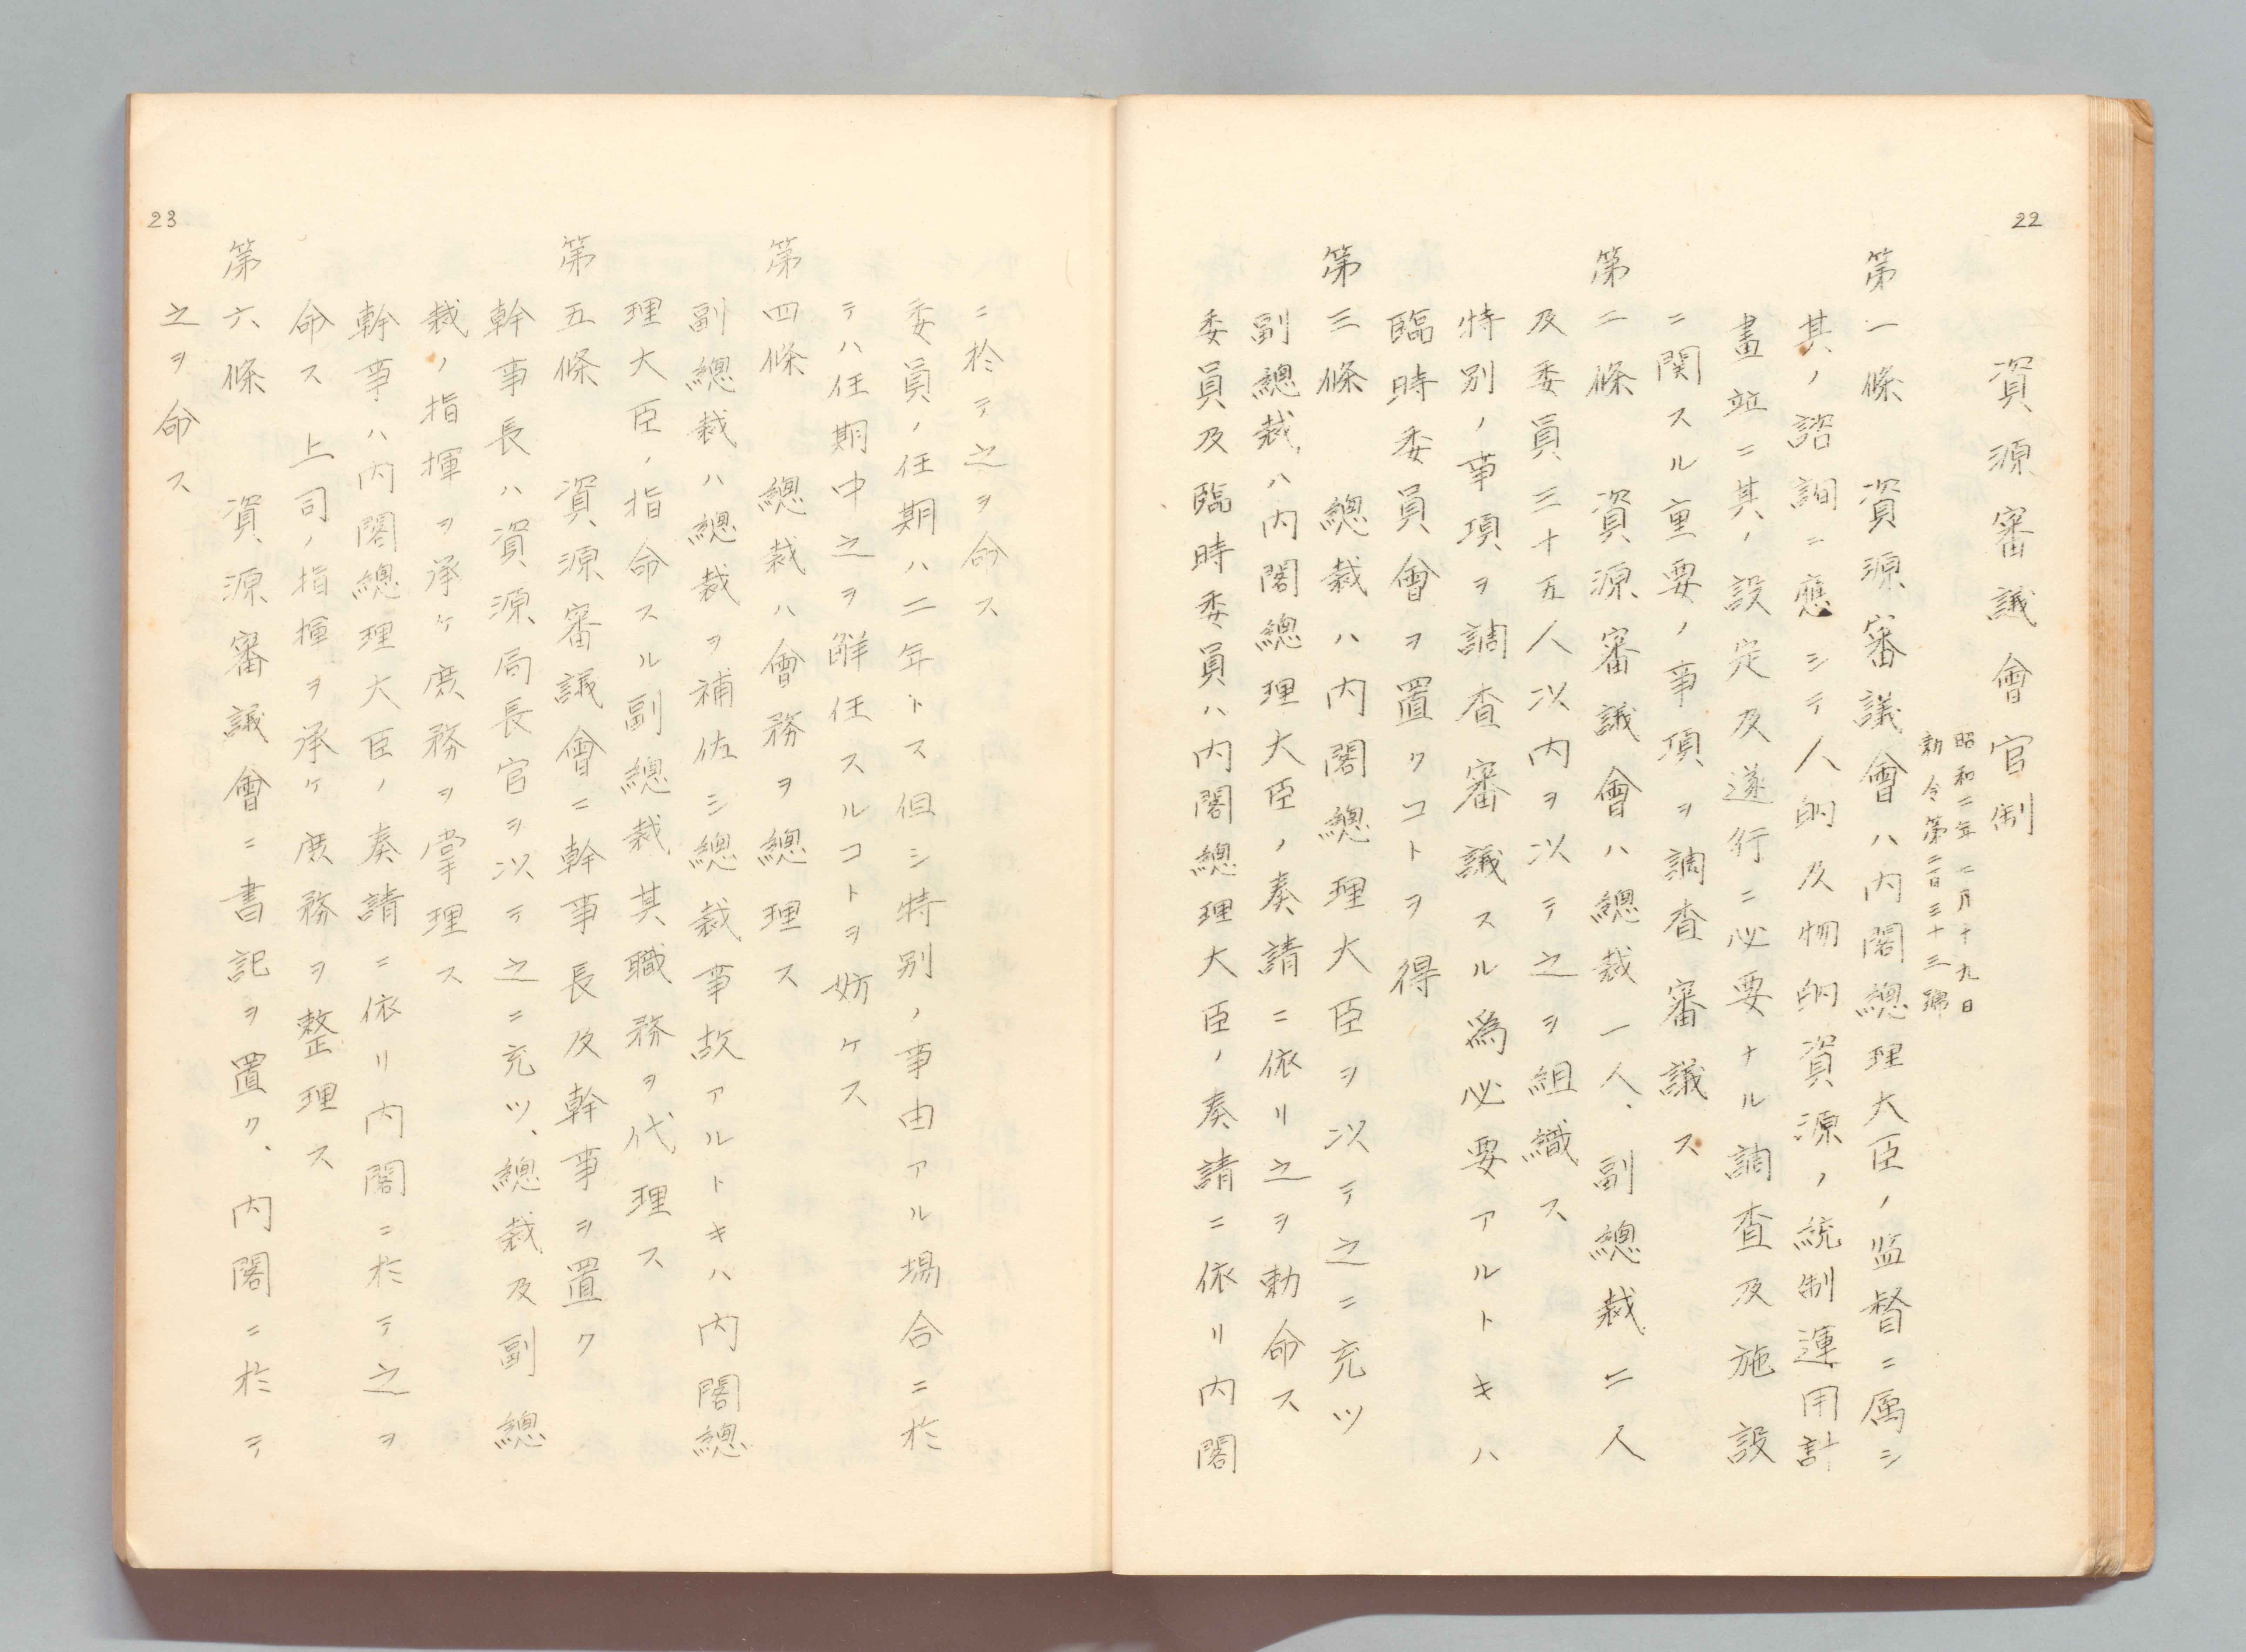 22
資源審議會官制
昭和二年二月十九日
勅令第二百三十三號
第一條　資源審議會ハ内閣總理大臣ノ監督ニ属シ
其ノ諮詢ニ應シテ人的及物的資源ノ統制運用計
畫竝ニ其ノ設定及遂行ニ必要ナル調査及施設
ニ関スル重要ノ事項ヲ調査審議ス
第二條　資源審議會ハ總裁一人、副總裁二人
及委員三十五人以内ヲ以テ之ヲ組織ス
特別ノ事項ヲ調査審議スル為必要アルトキハ
臨時委員會ヲ置クコトヲ得
第三條　總裁ハ内閣總理大臣ヲ以テ之ニ充ツ
副總裁ハ内閣總理大臣ノ奏請ニ依リ之ヲ勅命ス
委員及臨時委員ハ内閣總理大臣ノ奏請ニ依リ内閣
ニ於テ之ヲ命ス
委員ノ任期ハ二年トス但シ特別ノ事由アル場合ニ於
テハ任期中之ヲ解任スルコトヲ妨ケス
第四條　總裁ハ會務ヲ總理ス
副總裁ハ總裁ヲ補佐シ總裁事故アルトキハ内閣總
理大臣ノ指命スル副總裁其職務ヲ代理ス
第五條　資源審議會ニ幹事長及幹事ヲ置ク
幹事長ハ資源局長官ヲ以テ之ニ充ツ、總裁及副總
裁ノ指揮ヲ承ケ庶務ヲ掌理ス
幹事ハ内閣總理大臣ノ奏請ニ依リ内閣ニ於テ之ヲ
命ス上司ノ指揮ヲ承ケ庶務ヲ整理ス
第六條　資源審議會ニ書記ヲ置ク、内閣ニ於テ
之ヲ命ス
23